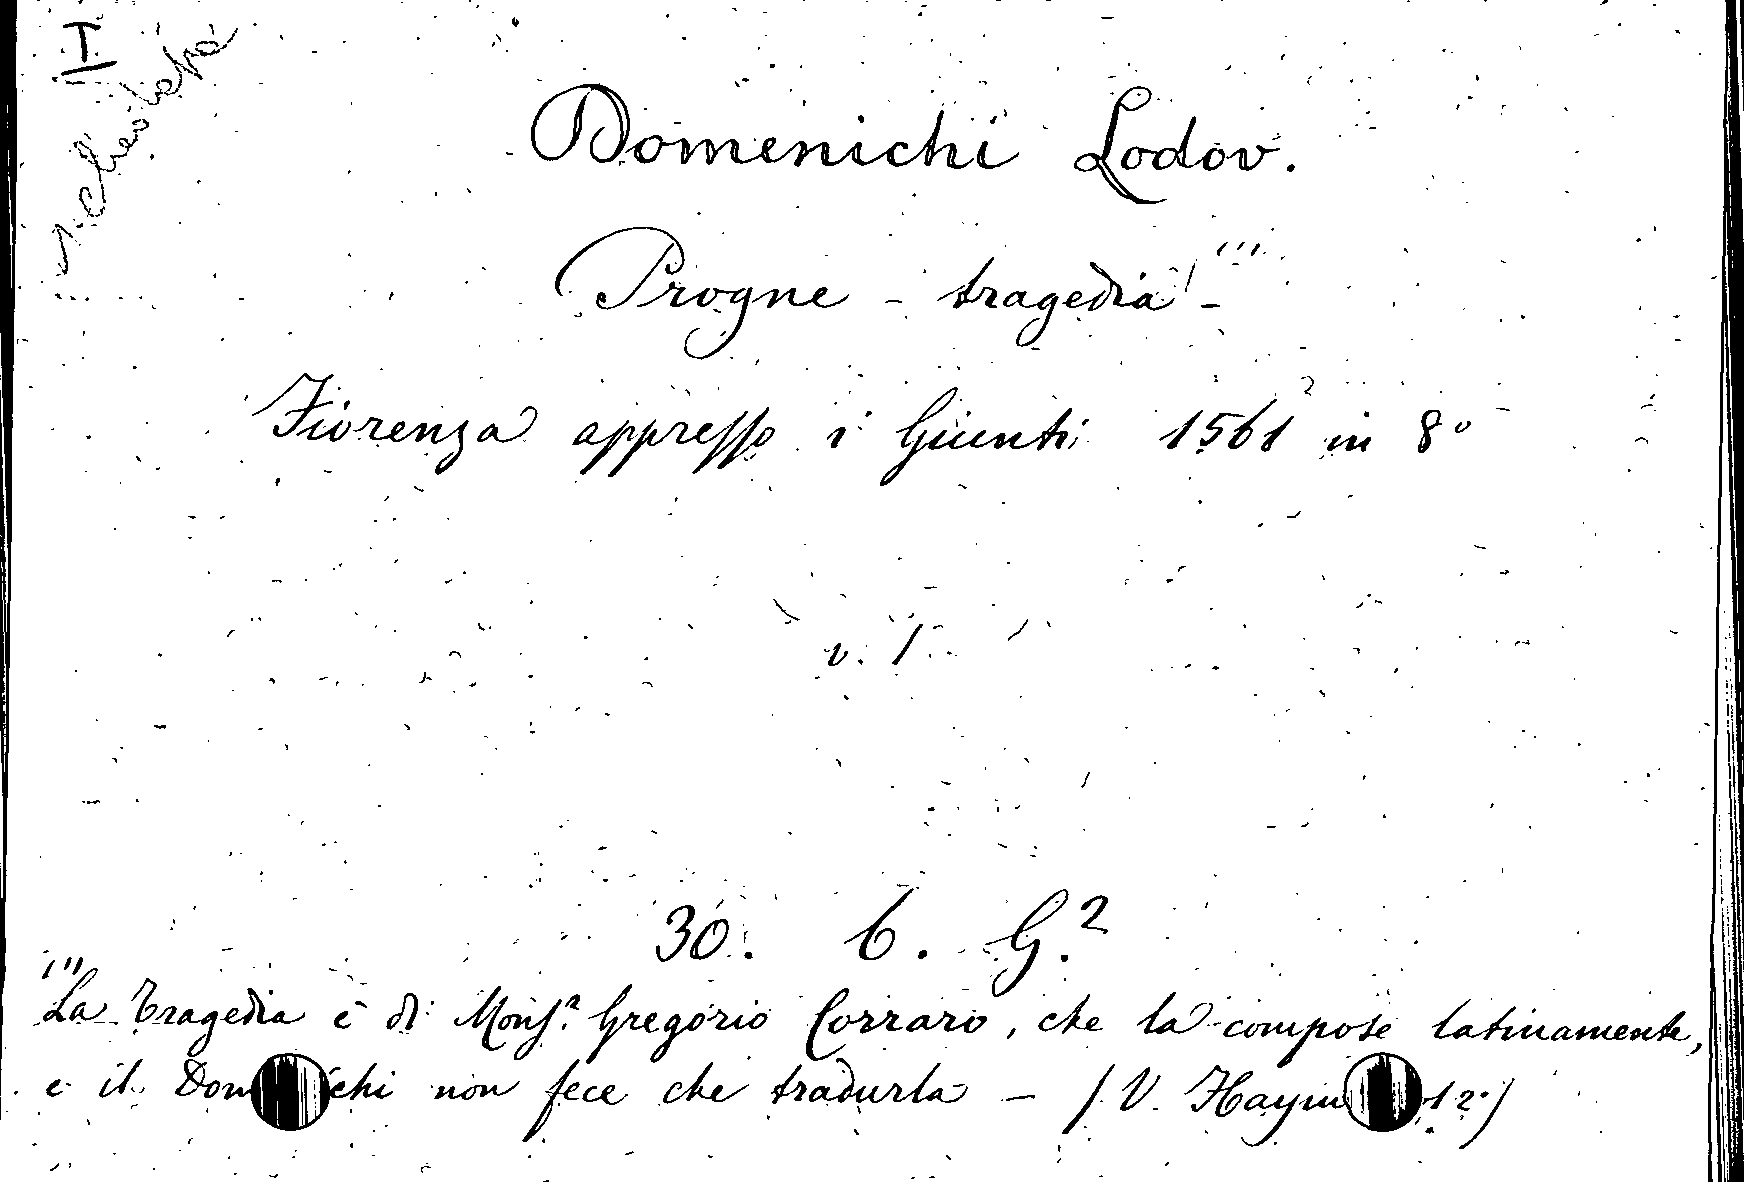 Domenichi Lodov.
Progne - tragedia -
Fiorenza appresso i Giunti 1561 in 8º
v. 1.
30. 6. G.2
La tragedia è di Monsr. Gregorio Corraro, che la compose latinamente,
e il Dom chi non fece che tradurla - (V. Haym 12.)